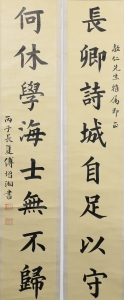 敬仁先生雅屬即正
長卿詩城自足以守
何休學海士無不歸
丙子長夏傅增湘書